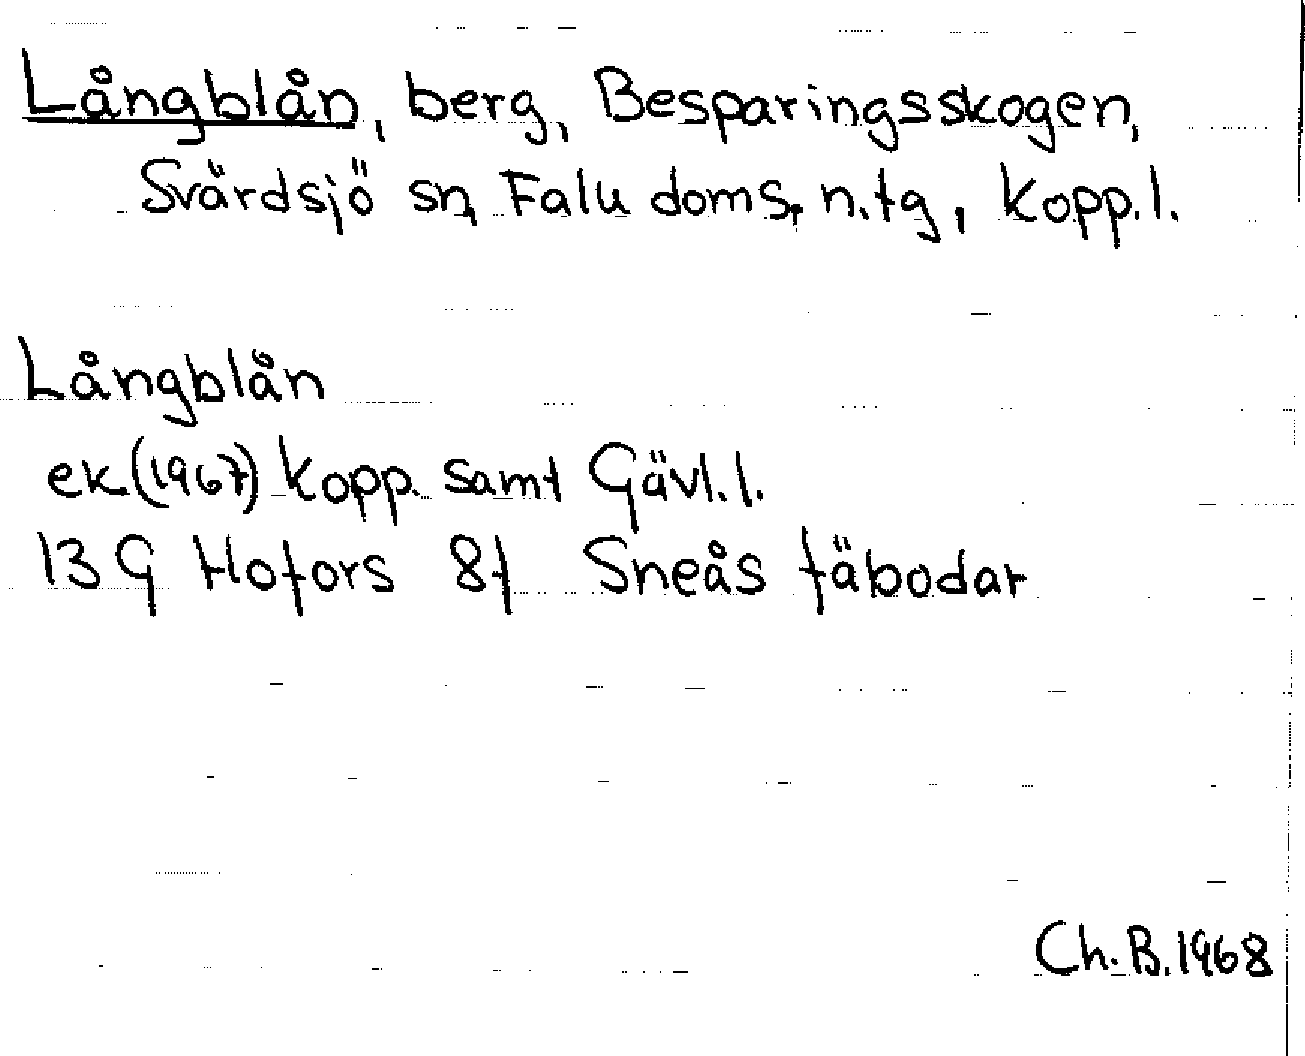 Långblån, berg, Besparingsskogen,
Svärdsjö sn, Falu doms. n.tg, Kopp.l.
Långblån
ek.(1967) Kopp. samt Gävl.l.
13G Hofors 8f Sneås fäbodar
Ch.B.1968